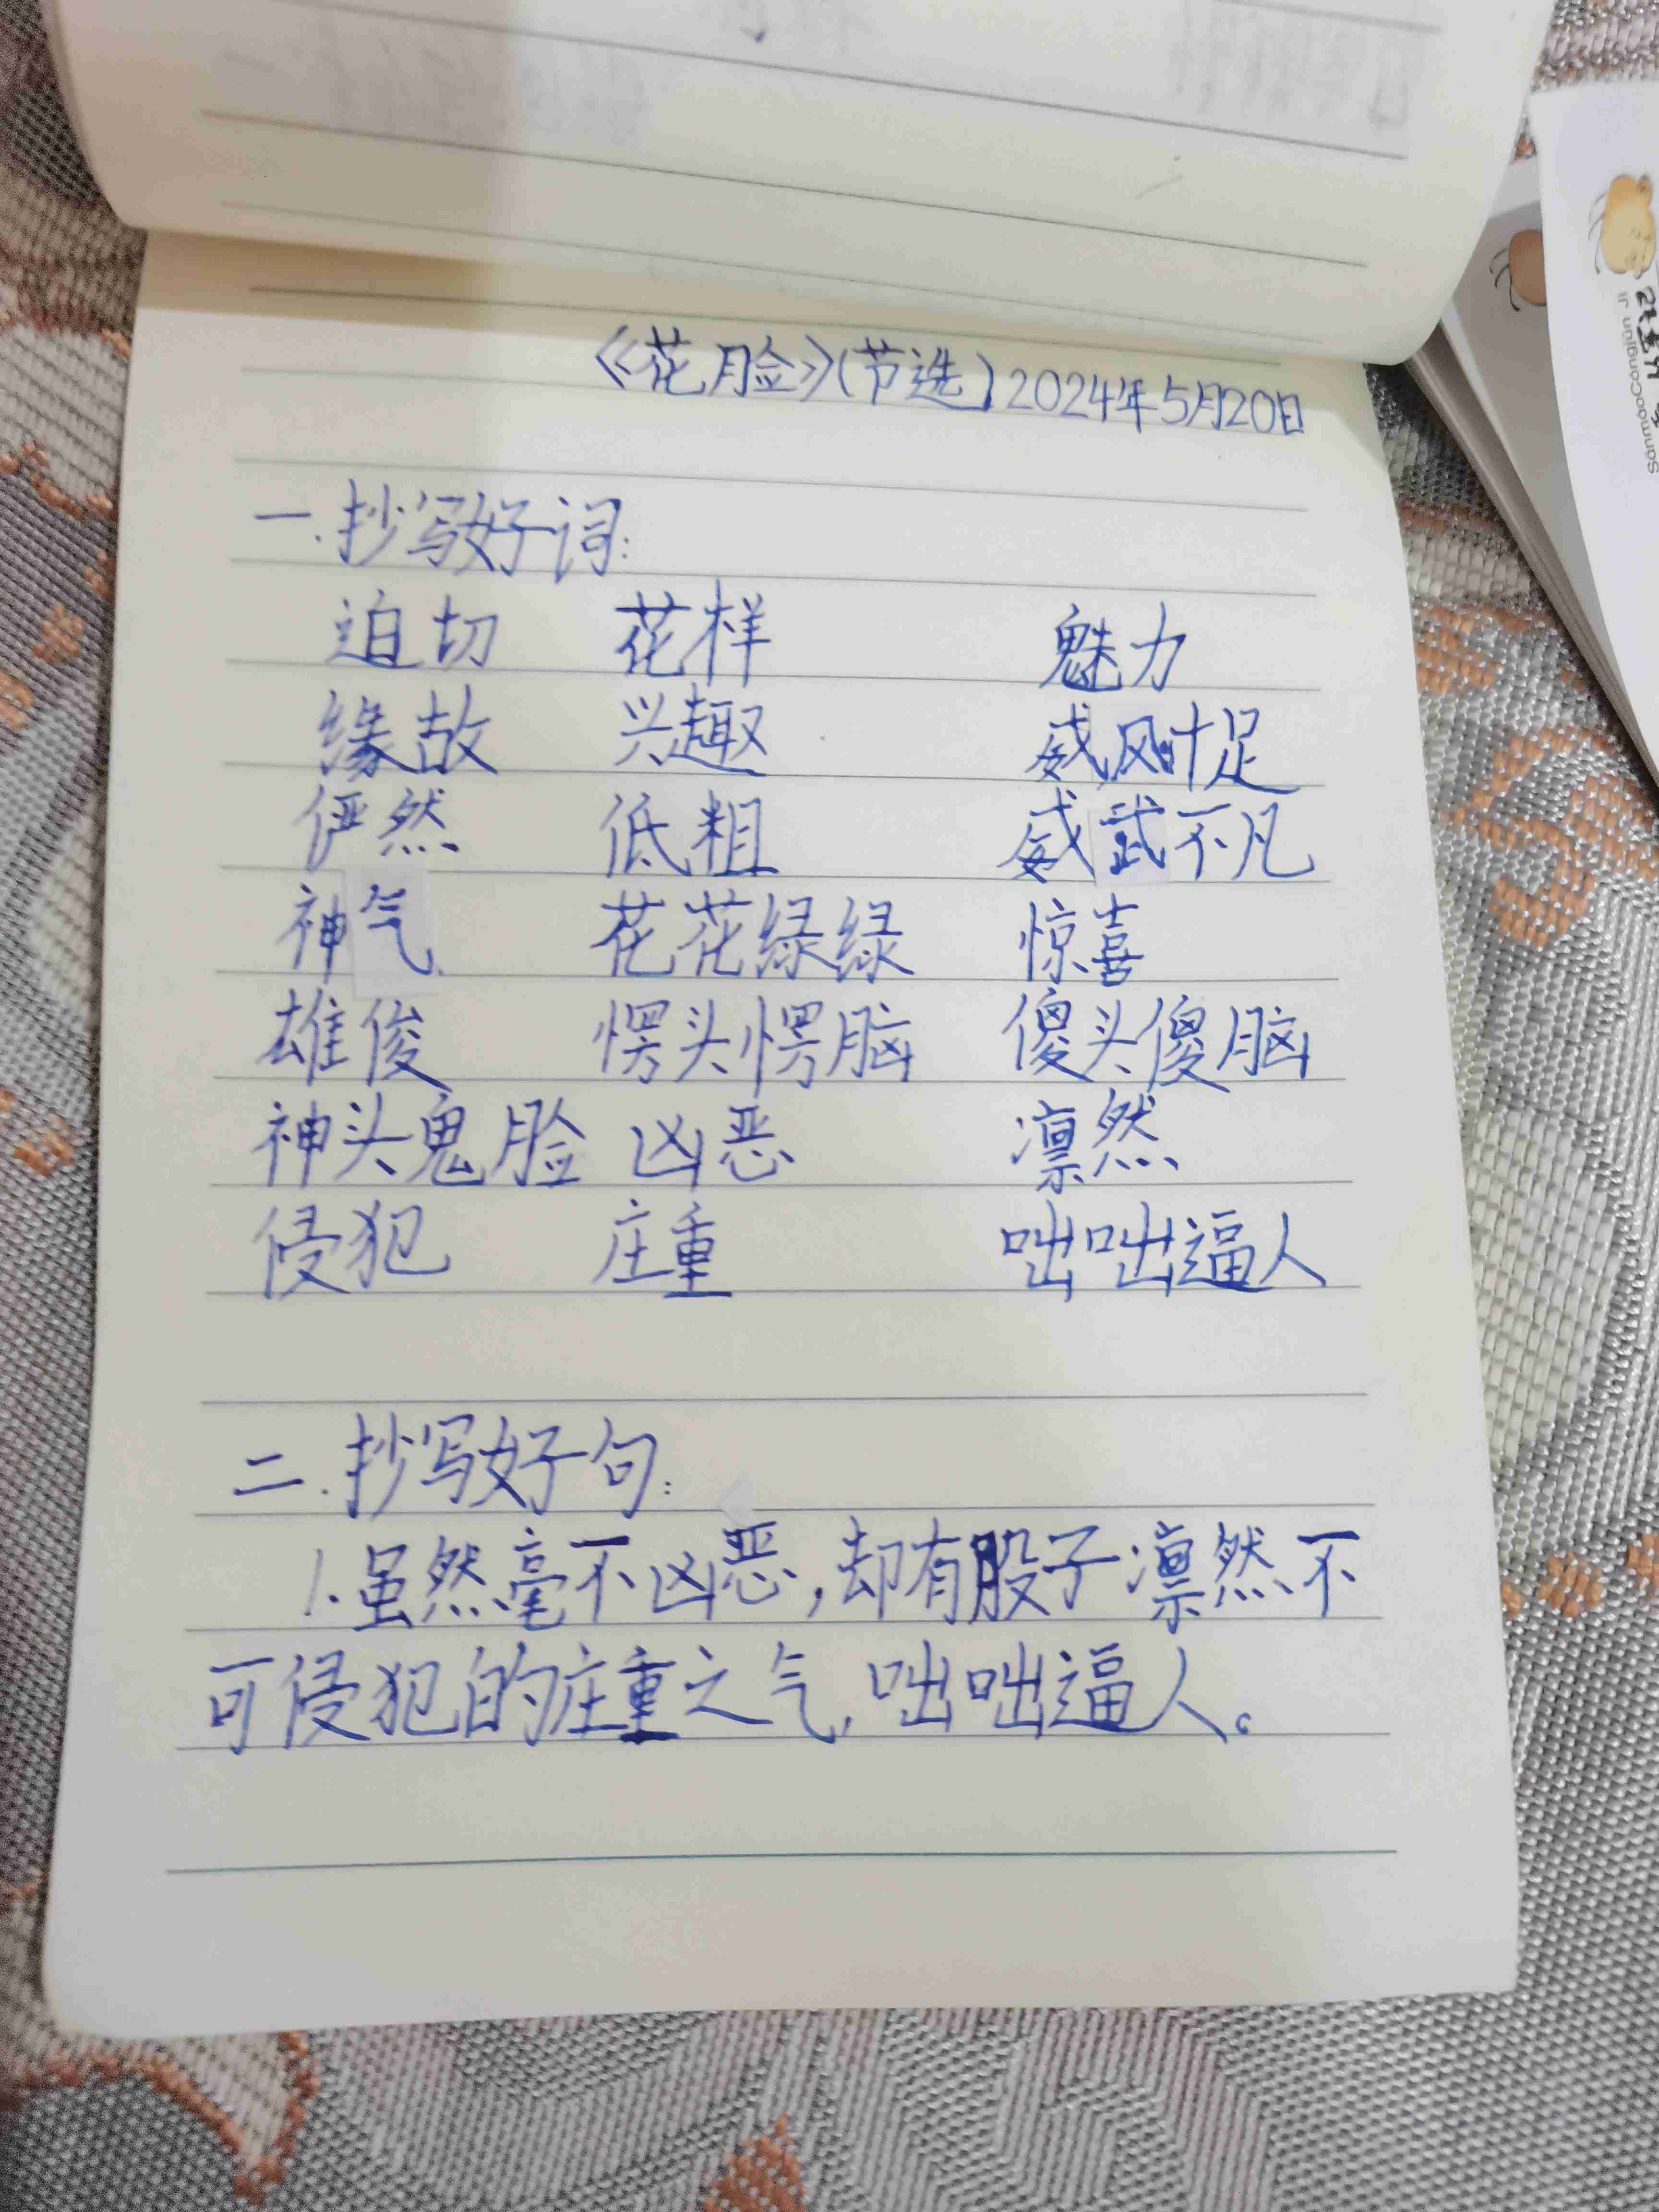 《花脸》(节选) 2024年5月20日
一.抄写好词:
迫切 花样 魅力
缘故 兴趣 威风十足
俨然 低粗 威武不凡
神气. 花花绿绿 惊喜
雄俊 愣头愣脑 傻头傻脑
神头鬼脸 凶恶 凛然
侵犯 庄重 咄咄逼人
二.抄写好句:
1.虽然毫不凶恶,却有股子凛然不
可侵犯的庄重之气,咄咄逼人。